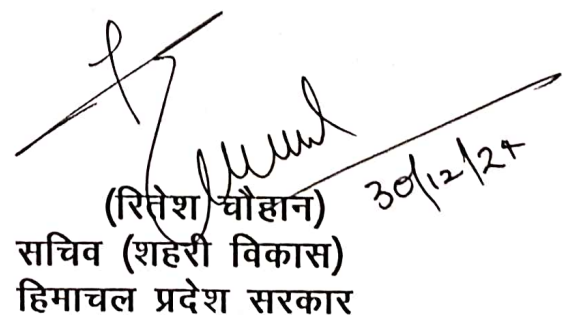 30/12/24
(रितेश चौहान)
सचिव (शहरी विकास)
हिमाचल प्रदेश सरकार